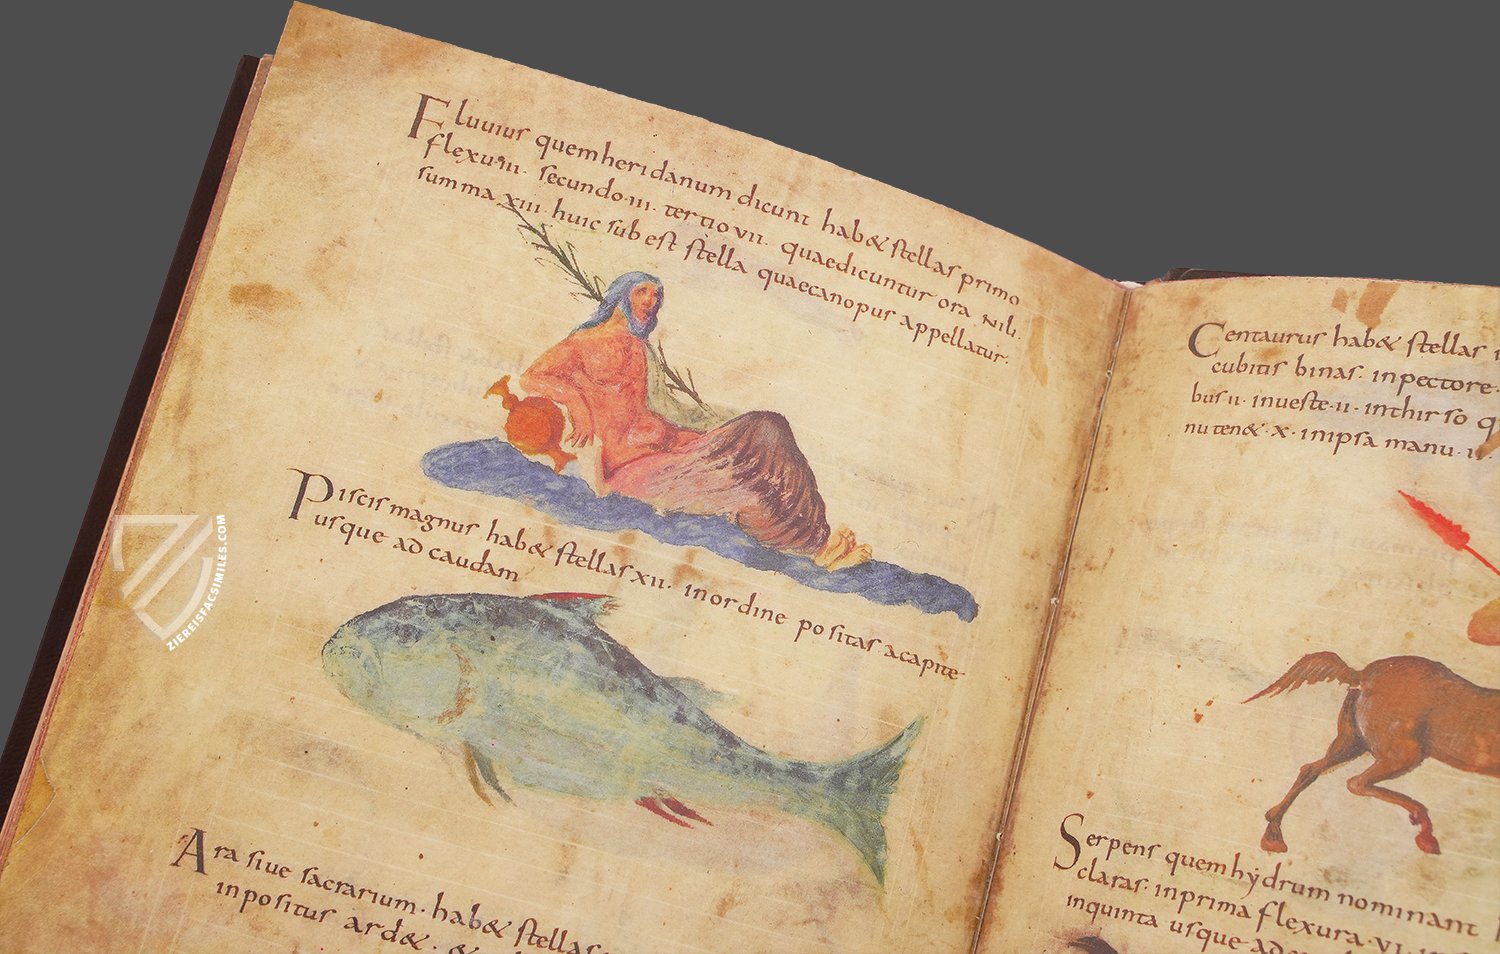 Fluuius quem heridanum dicunt hab& stellas primo
flexu·iii· secundo·iii· tertio vii· quae dicuntur ora nili·
summa xiii· huic sub est stella quae canopus appellatur·
Piscis magnus hab& stellas xii· in ordine positas a capite
usque ad caudam
Ara siue sacrarium· hab& stellas
inpositus ard&· &
Centaurus hab& stellas
cubitis binas· in pectore·
bus ii· in ueste·ii· in thirso
nu ten&·x· in ipsa manu·ii·
Serpens quem hydrum nominant
claras· in prima flexura·vi·
in quinta usque ad
ZIEREISFACSIMILES.COM